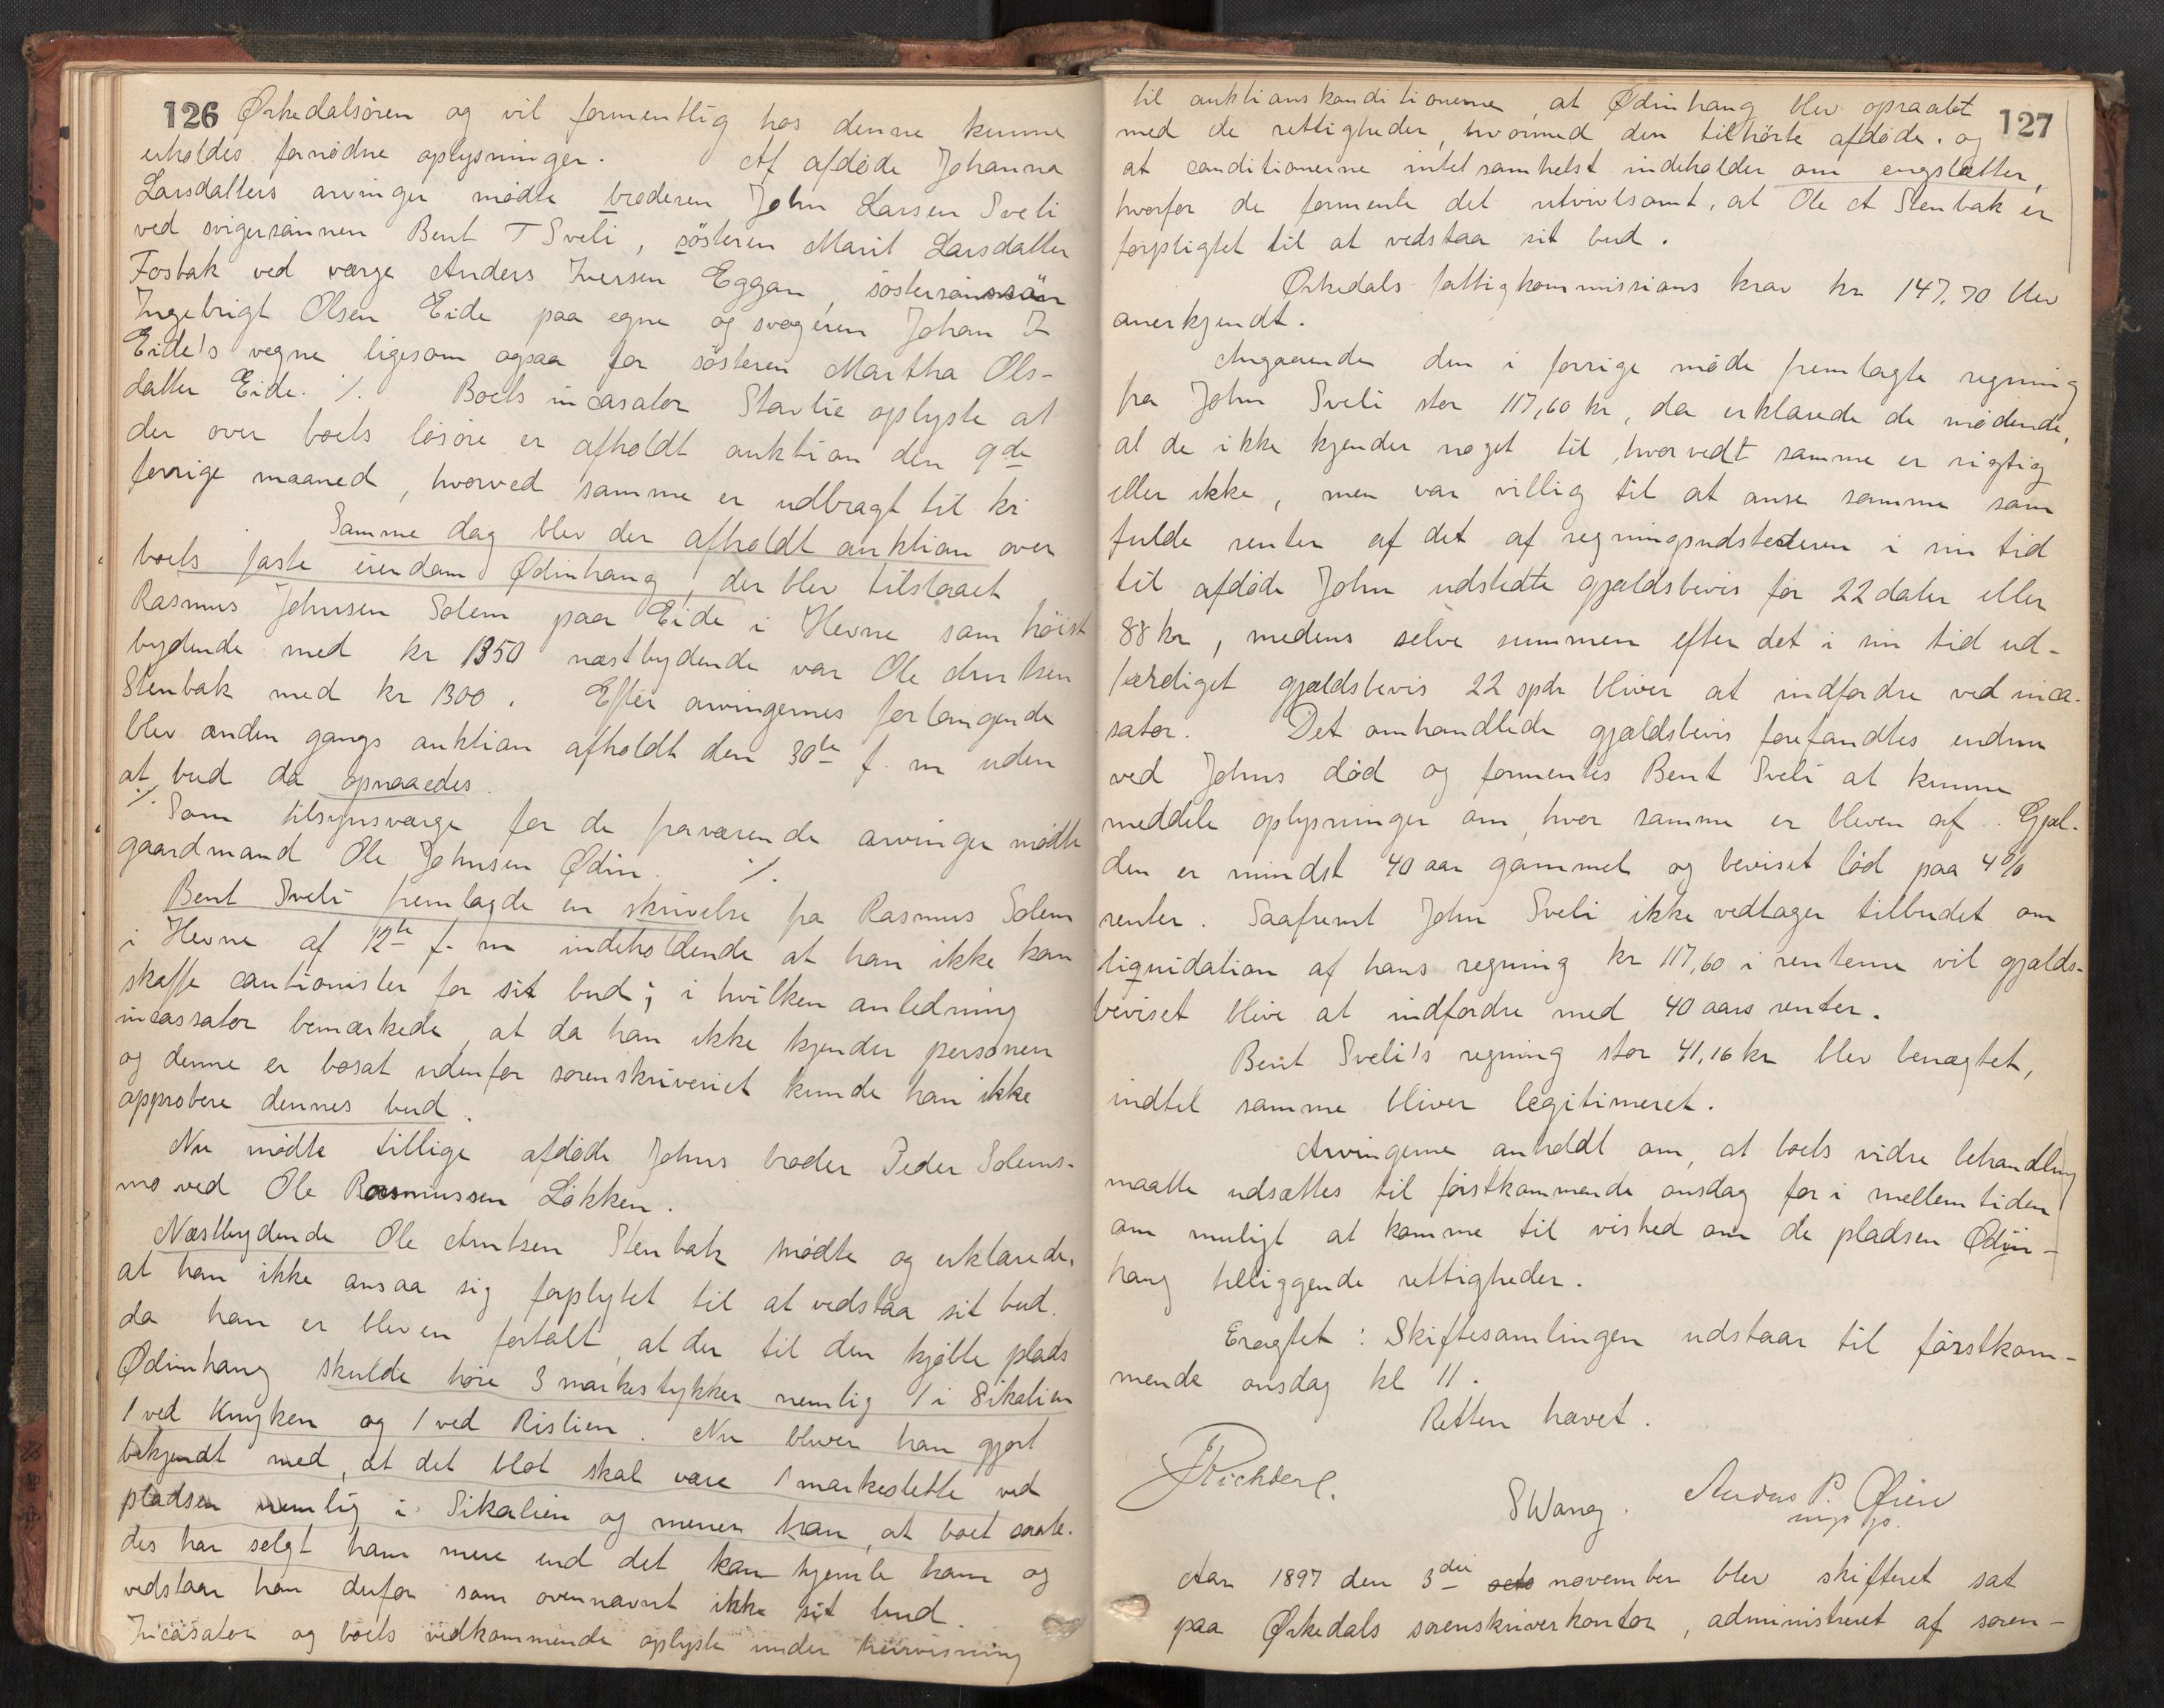 126 Ørkedalsøren og vil formentlig hos denne kunne
erholdes fornødne oplysninger. Af afdøde Johanna
Larsdatters arvinger mødte broderen John Larsen Sveli
ved svigersønnen Bent T Sveli, søsteren Marit Larsdatter
Fosbak ved værge Anders Iversen Eggan, søstersønssøn
Ingebrigt Olsen Eide paa egne og svogeren Johan I
Eide's vegne ligesom ogsaa for søsteren Martha Ols-
datter Eide. ./. Boets incasator Stavlie oplyste at
der over boets løsøre er afholdt auktion den 9de
forrige maaned, hvorved samme er udbragt til kr
Samme dag blev der afholdt auktion over
boets faste eiendom Ødinhaug, der blev tilslaaet
Rasmus Johnsen Solem paa Eide i Hevne som høist
bydende med kr 1350 næstbydende var Ole Arntsen
Stenbak med kr 1300. Efter arvingernes forlangende
blev anden gangs auktion afholdt den 30te f. m uden
at bud da opnaaedes.
./. Som tilsynsværge for de fraværende arvinger mødte
gaardmand Ole Johnsen Ødin. ./.
Bent Sveli fremlagde en skrivelse fra Rasmus Solem
i Hevne af 12te f. m indeholdende at han ikke kan
skaffe cautionister for sit bud; i hvilken anledning
incassator bemærkede, at da han ikke kjender personen
og denne er bosat udenfor sorenskriveriet kunde han ikke
approbere dennes bud.
Nu mødte tillige afdøde Johns broder Peder Solems-
mo ved Ole Rasmussen Løkken.
Næstbydende Ole Arntsen Stenbak mødte og erklærede,
at han ikke ansaa sig forplytet til at vedstaa sit bud.
da han er bleven fortalt, at der til den kjøbte plads
Ødinhaug skulde høre 3 markestykker nemlig 1 i Sikalien
1 ved Knyken og 1 ved Rislien. Nu bliver han gjort
bekjendt med, at det blot skal være 1 markeslette ved
pladsen nemlig i Sikalien og mener han, at boet saale-
des har solgt ham mere end det kan hjemle ham og
vedstaar han derfor som ovennævnt ikke sit bud.
Incasator og boets vedkommende oplyste under henvisning
127
til auktionskonditionerne, at Ødinhaug blev opraabt
med de rettigheder, hvormed den tilhørte afdøde. og
at conditionerne intetsomhelst indeholder om engsletter,
hvorfor de formente det utvivlsomt, at Ole A Stenbak er
forpligtet til at vedstaa sit bud.
Ørkedals fattigkommissions krav kr 147.70 blev
anerkjendt.
Angaaende den i forrige møde fremlagte regning
fra John Sveli stor 117,60 kr, da erklærede de mødende,
at de ikke kjender noget til, hvorvedt samme er rigtig
eller ikke, men var villig til at anse samme som
fulde renter af det af regningsudstederen i sin tid
til afdøde John udstedte gjældsbevis for 22 daler eller
88 kr, medens selve summen efter det i sin tid ud-
færdiget gjældsbevis 22 spdr bliver at indfordre ved inca-
sator. Det omhandlede gjældsbevis forefandtes endnu
ved Johns død og formentes Bent Sveli at kunne
meddele oplysninger om, hvor samme er bleven af. Gjæl-
den er mindst 40 aar gammel og beviset lød paa 4%
renter. Saafremt John Sveli ikke vedtager tilbudet om
liquidation af hans regning kr 117,60 i renterne vil gjælds-
beviset blive at indfordre med 40 aars renter.
Bent Sveli's regning stor 41,16 kr blev benægtet,
indtil samme bliver legitimeret.
Arvingerne anholdt om, at boets vidre behandling
maatte udsættes til førstkommende onsdag for i mellemtiden
om muligt at komme til vished om de pladsen Ødin-
haug tilliggende rettigheder.
Eragtet: Skiftesamlingen udstaar til førstkom-
mende onsdag kl 11.
Retten hævet.
JRichter C.
SWang. Anders P. Øien
Aar 1897 den 3die november blev skifteret sat
paa Ørkedals sorenskriverkontor, administreret af soren-